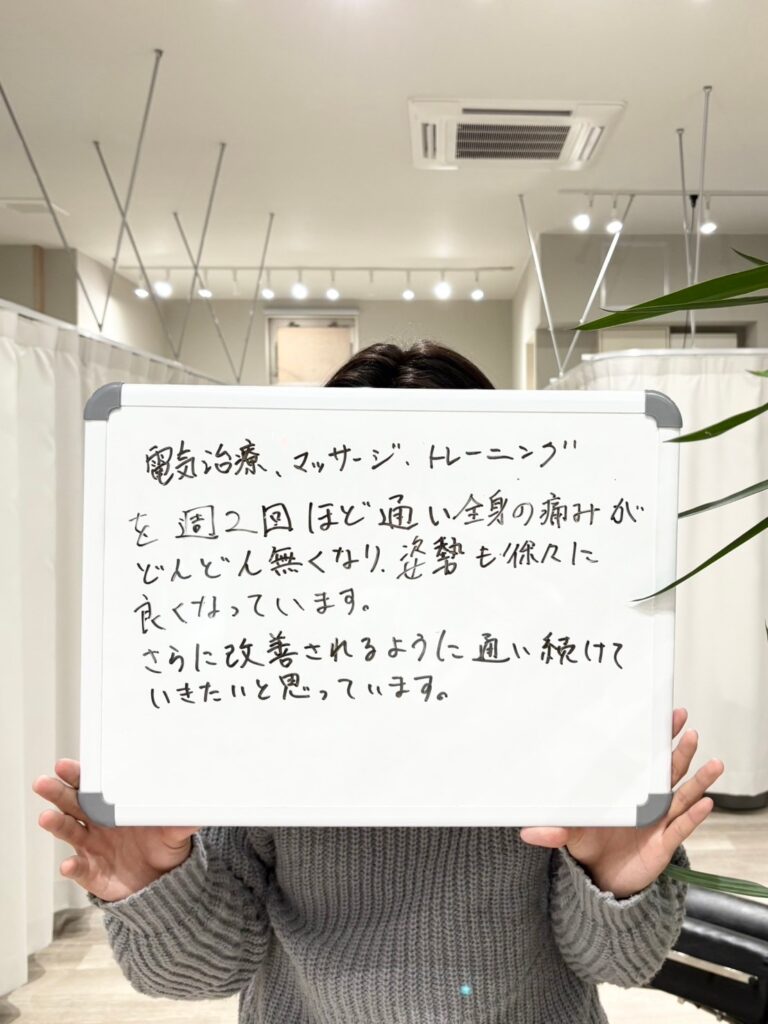 電気治療、マッサージ、トレーニング
を週2回ほど通い全身の痛みが
どんどん無くなり、姿勢も徐々に
良くなっています。
さらに改善されるように通い続けて
いきたいと思っています。